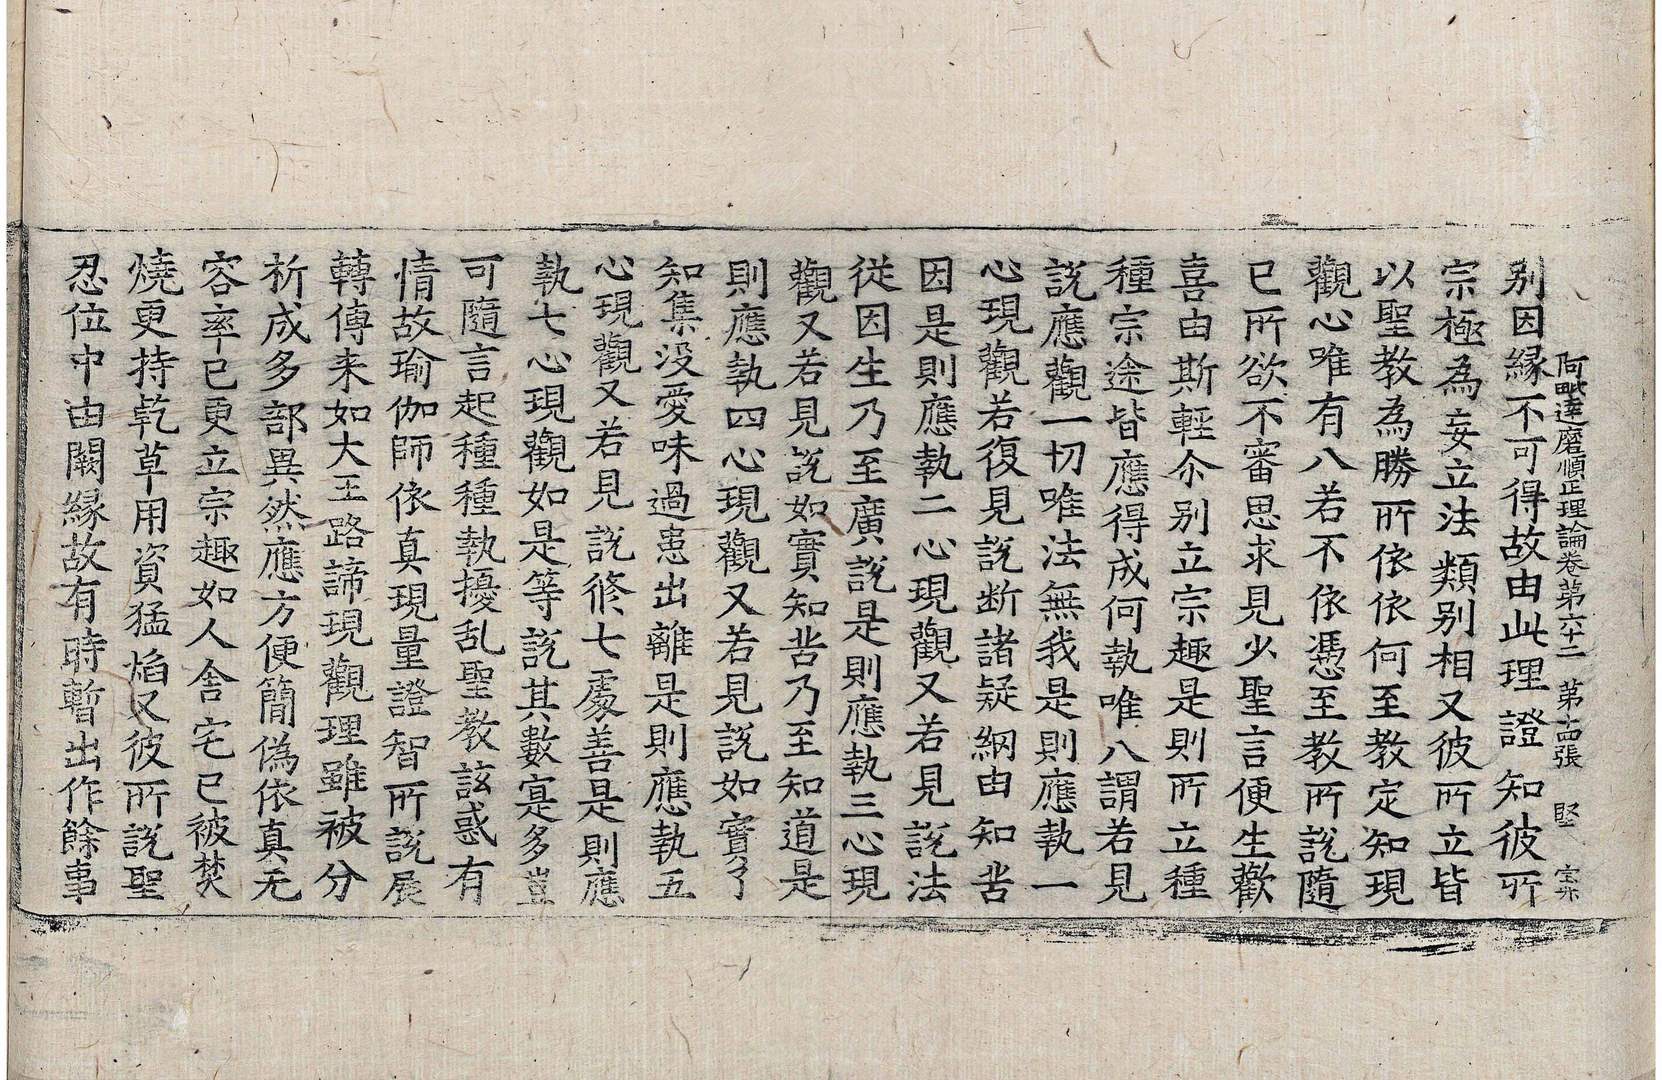 阿毗達磨順正理論卷第六十二 第十四張 堅
別因緣不可得故由此理證知彼所
宗極為妄立法類別相又彼所立皆
以聖教為勝所依依何至教定知現
觀心唯有八若不依憑至教所說隨
已所欲不審思求見少聖言便生歡
喜由斯輕尒別立宗趣是則所立種
種宗途皆應得成何執唯八謂若見
說應觀一切唯法無我是則應執一
心現觀若復見說断諸疑網由知苦
因是則應執二心現觀又若見說法
從因生乃至廣說是則應執三心現
觀又若見說如實知苦乃至知道是
則應執四心現觀又若見說如實了
知集没愛味過患出離是則應執五
心現觀又若見說修七處善是則應
執七心現觀如是等說其數寔多豈
可隨言起種種執擾乱聖教該惑有
情故瑜伽師依真現量證智所說展
轉傳来如大王路諦現觀理雖被分
析成多部異然應方便簡偽依真无
容率已更立宗趣如人舍宅已被焚
燒更持乾草用資猛焰又彼所說聖
忍位中由闕緣故有時暫出作餘事